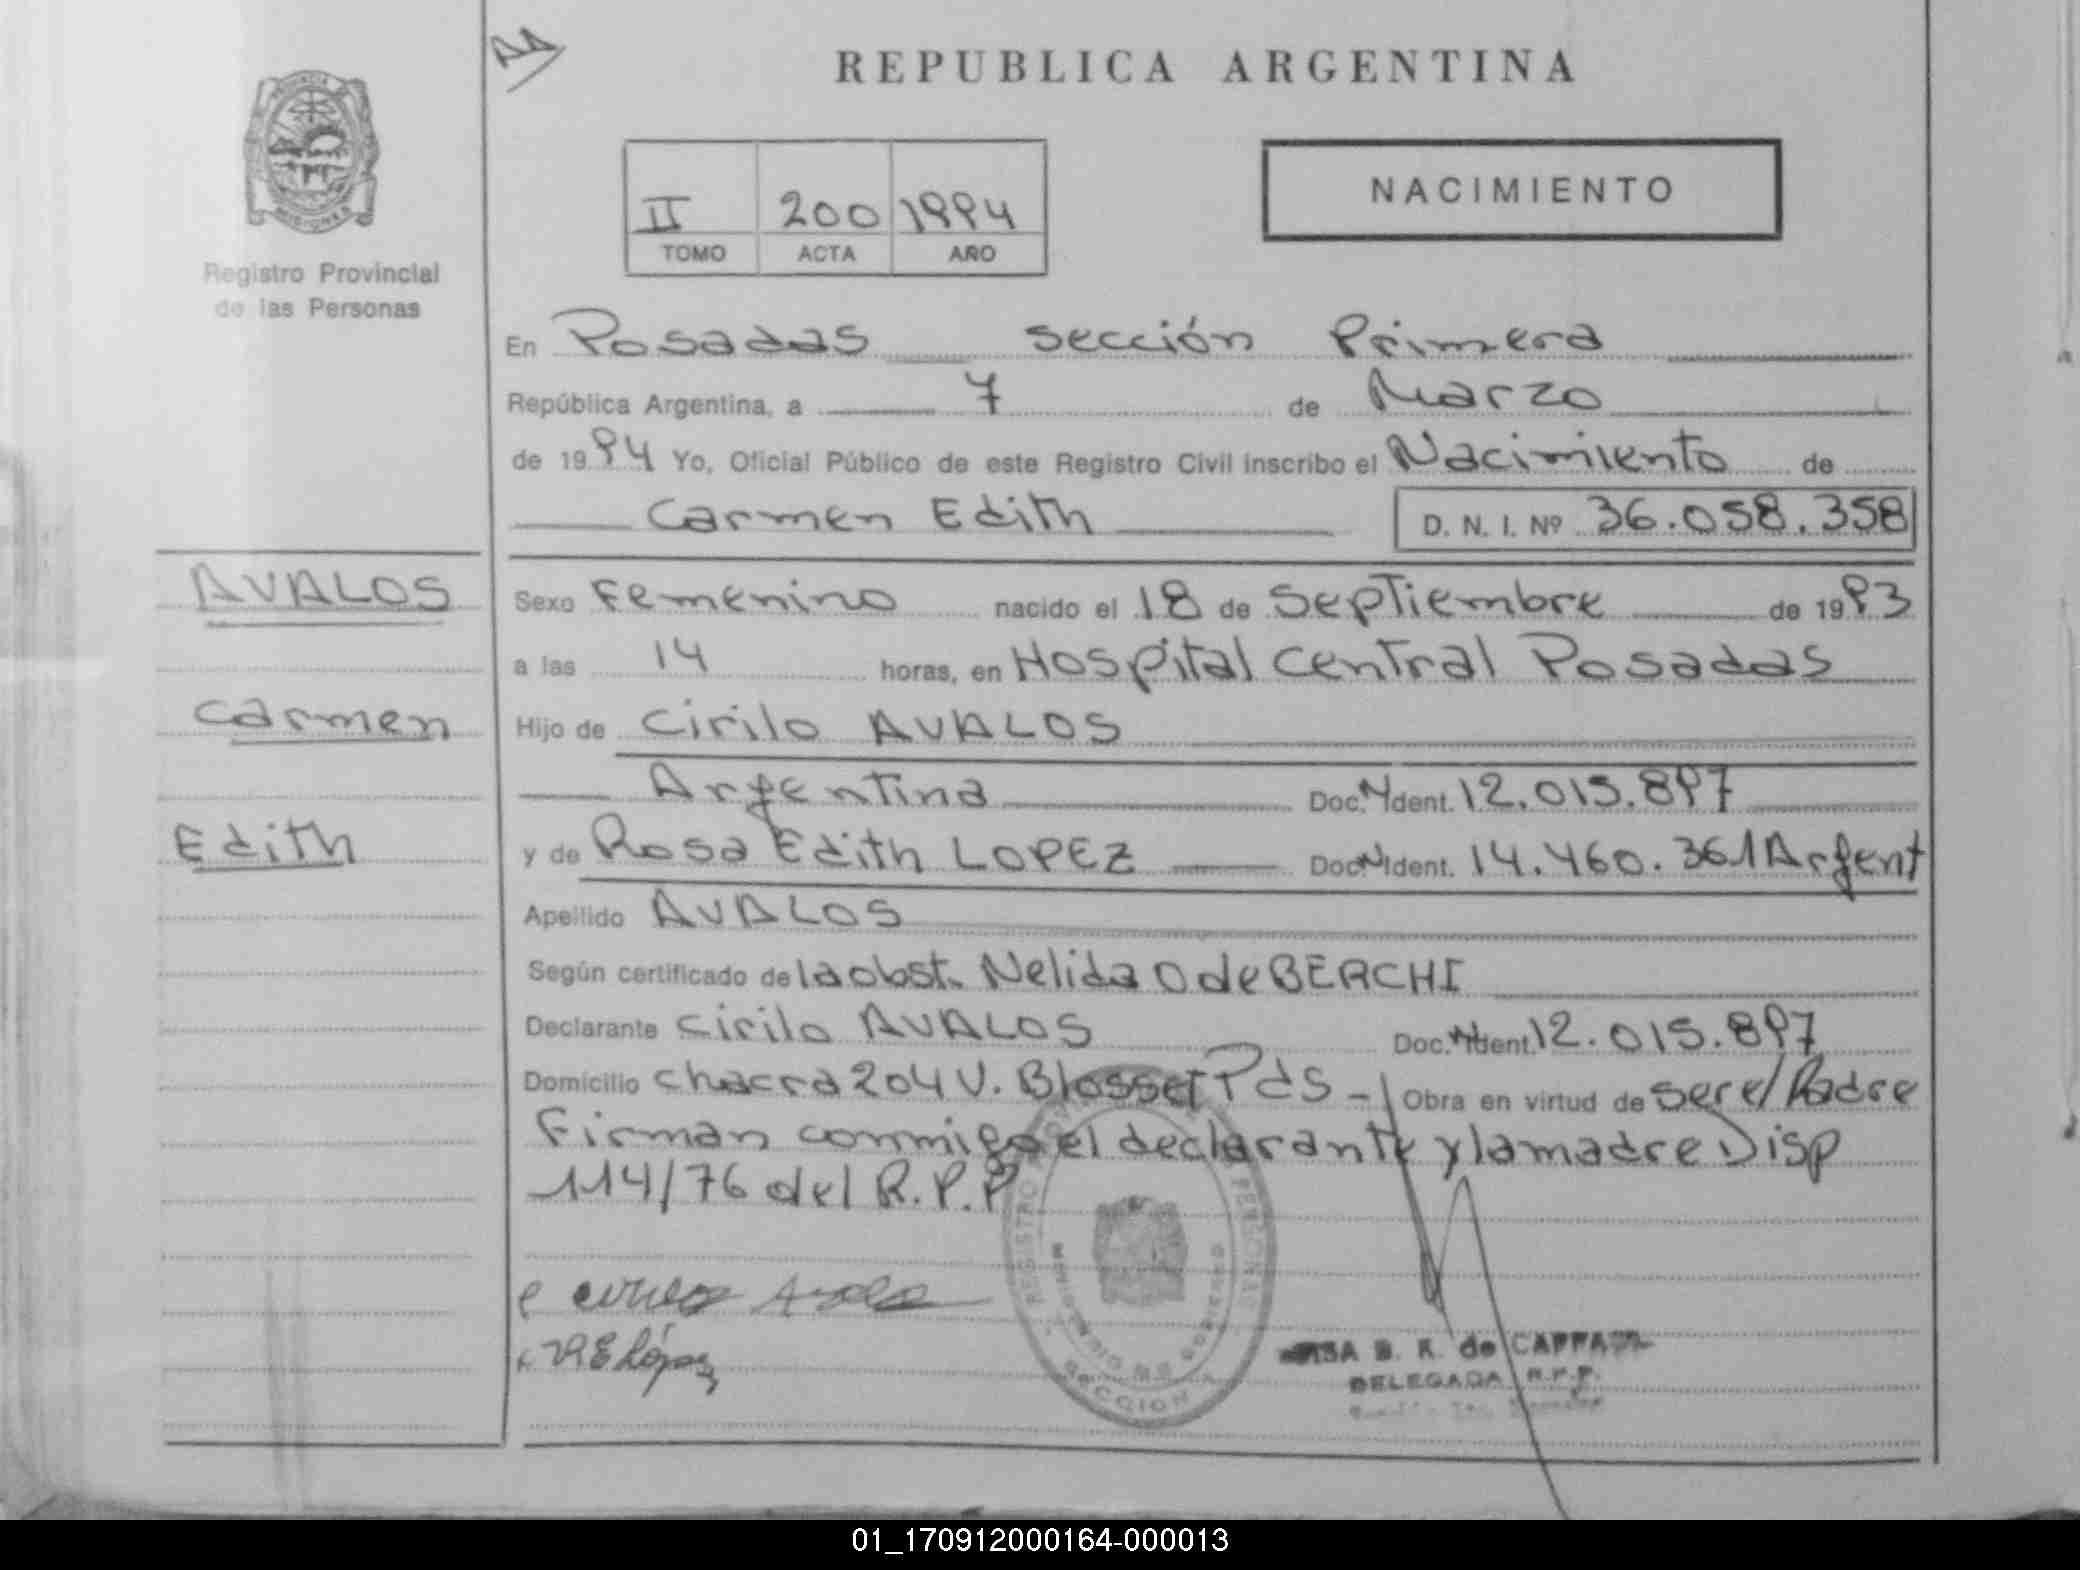 REPUBLICA ARGENTINA
PROVINCIA
MISIONES
Registro Provincial
de las Personas
II 200 1994
TOMO ACTA AÑO
NACIMIENTO
En Posadas sección Primera
República Argentina, a 7 de Marzo
de 1994 Yo, Oficial Público de este Registro Civil inscribo el Nacimiento de
Carmen Edith D. N. I. Nº 36.058.358
AVALOS
Carmen
Edith
Sexo Femenino nacido el 18 de Septiembre de 1993
a las 14 horas, en Hospital Central Posadas
Hijo de Cirilo AVALOS
Argentina Doc. Ident. 12.015.897
y de Rosa Edith LOPEZ Doc. Ident. 14.460.361 Argent
Apellido AVALOS
Según certificado de la obst. Nelida O de BERCHI
Declarante Cirilo AVALOS Doc. Ident. 12.015.897
Domicilio chacra 204 V. Blosset Pds - Obra en virtud de ser el Padre
Firman conmigo el declarante y la madre Disp
114/76 del R.P.P
REGISTRO PERSONAS
MINISTERIO DE GOBIERNO
SECCION
Cirilo Avalos
R E López
B. R. de
DELEGADA R.P.P.
01_170912000164-000013